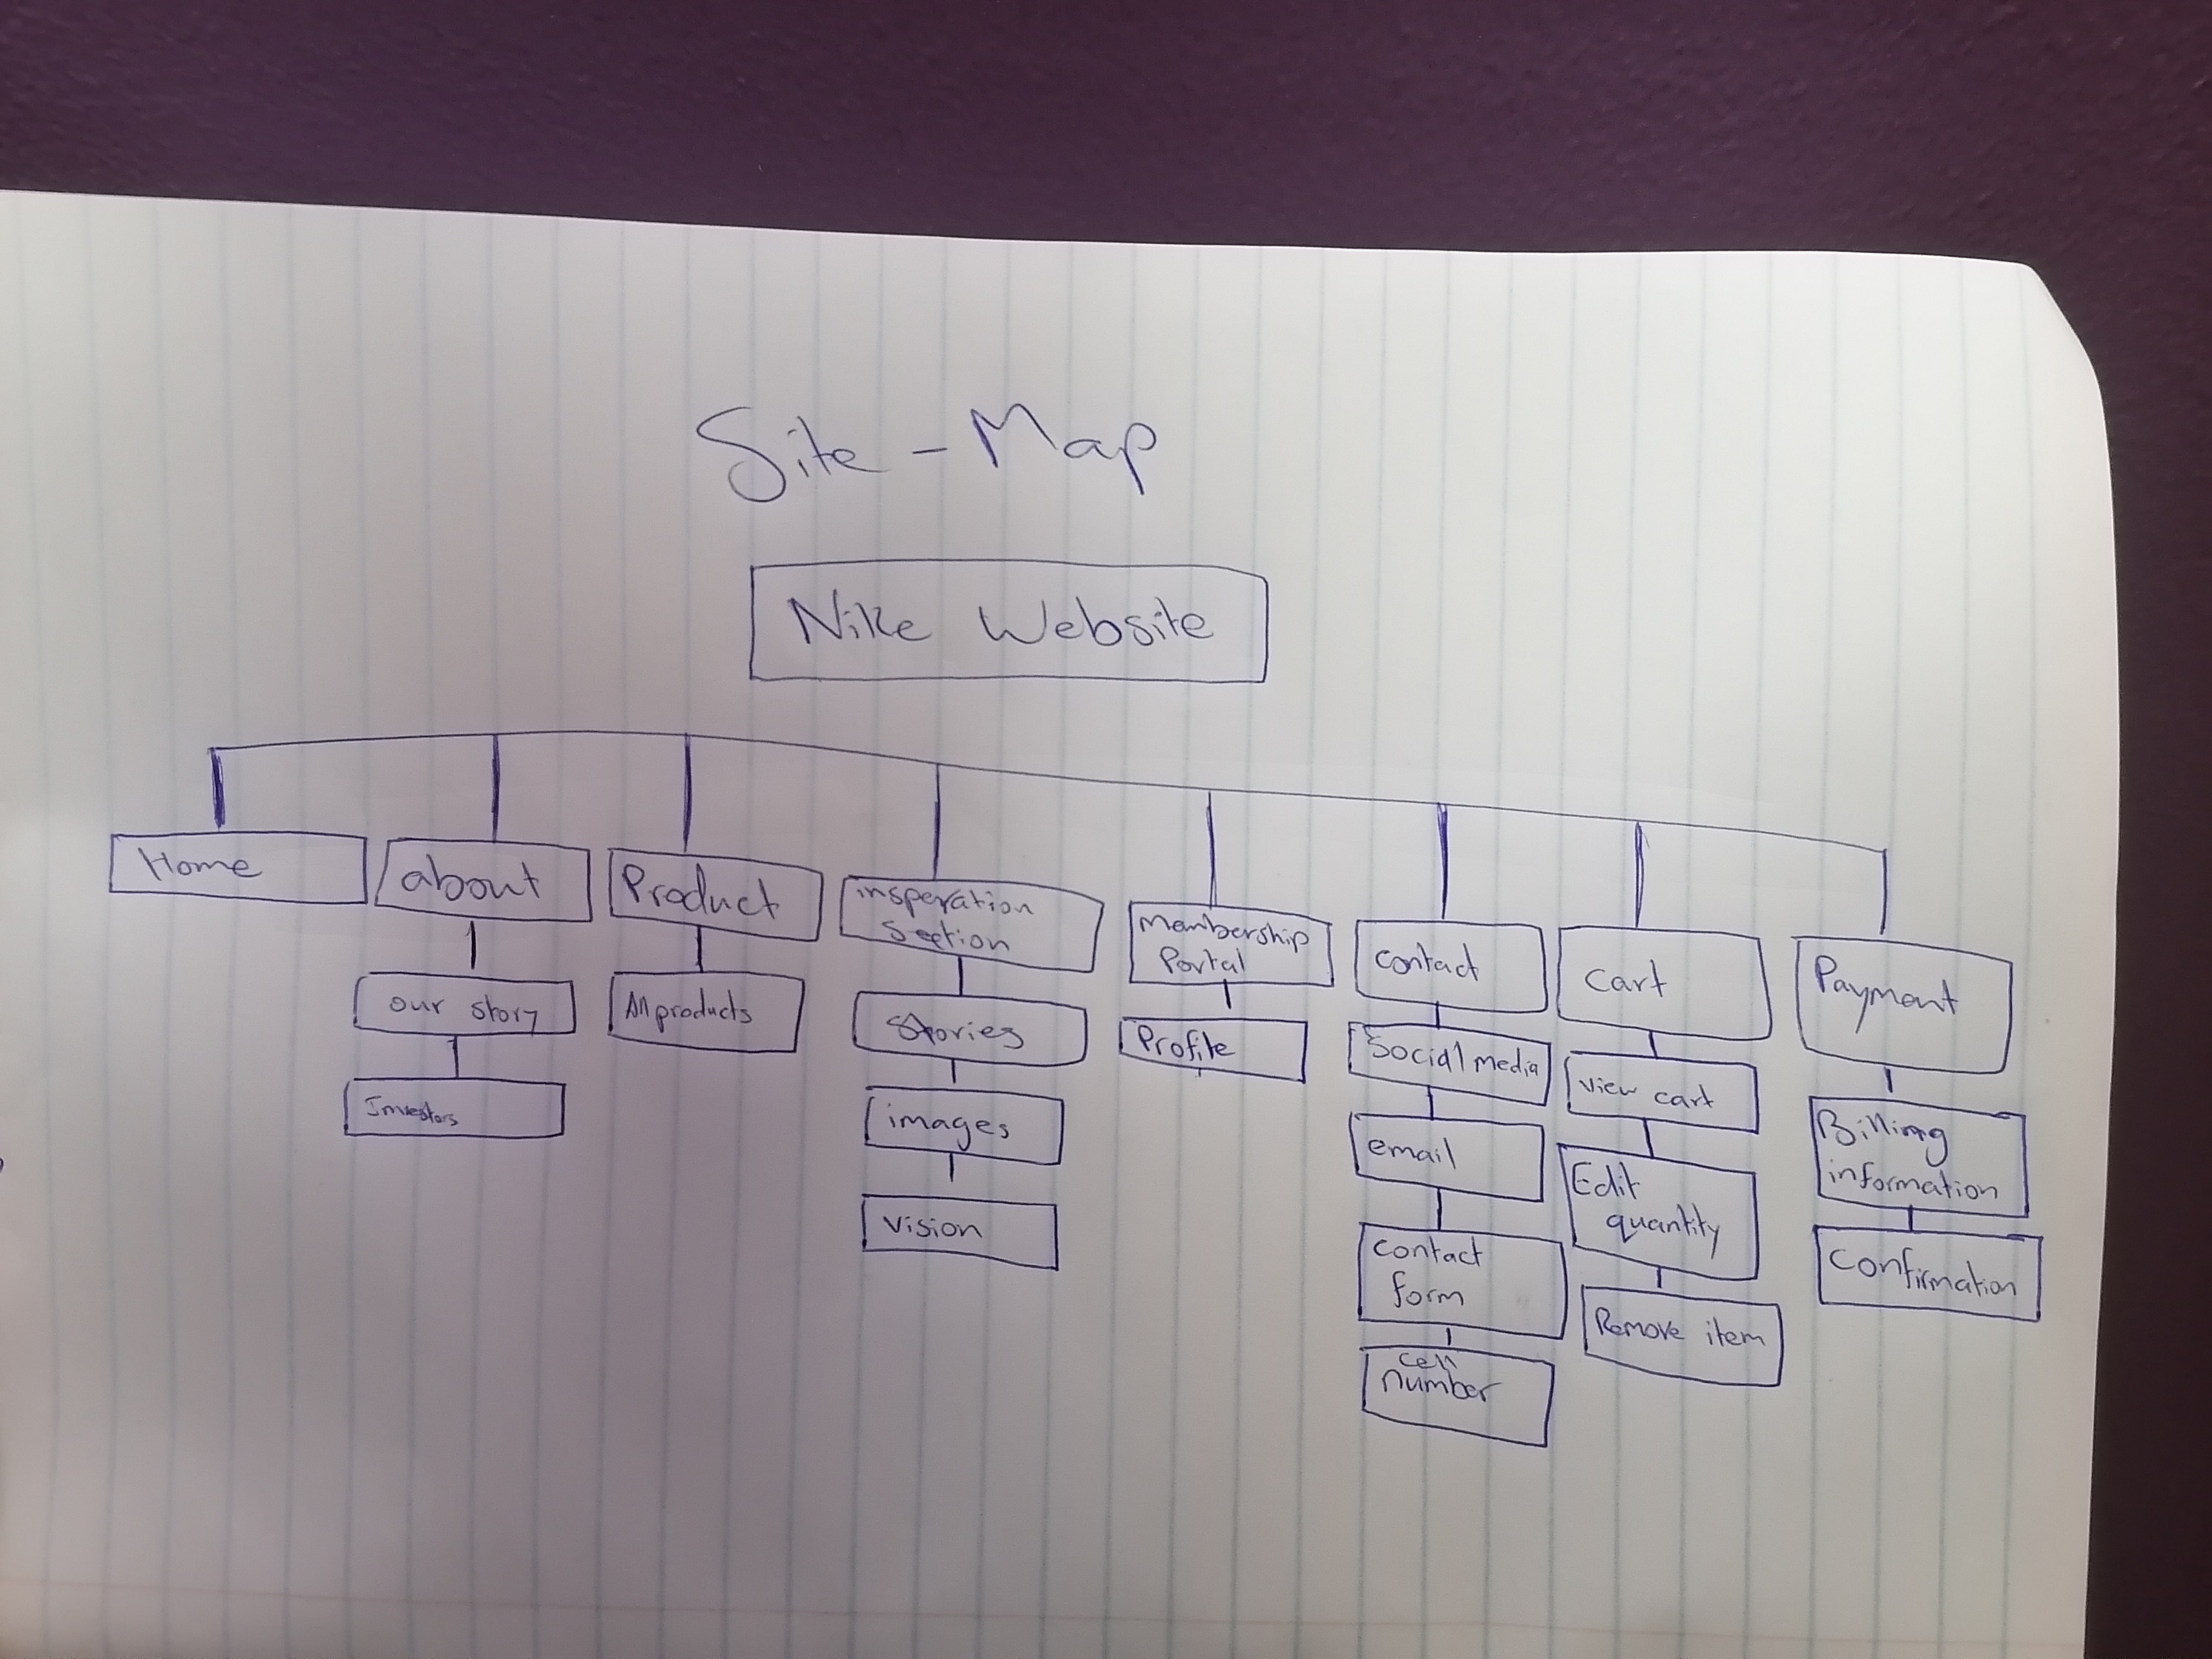 Site - Map
Nike Website
Home
about
our story
Investors
Product
All products
insperation
Section
Stories
images
vision
Membership
Portal
Profile
contact
Social media
email
contact
form
cell
number
cart
view cart
Edit
quantity
Remove item
Payment
Billing
information
Confirmation